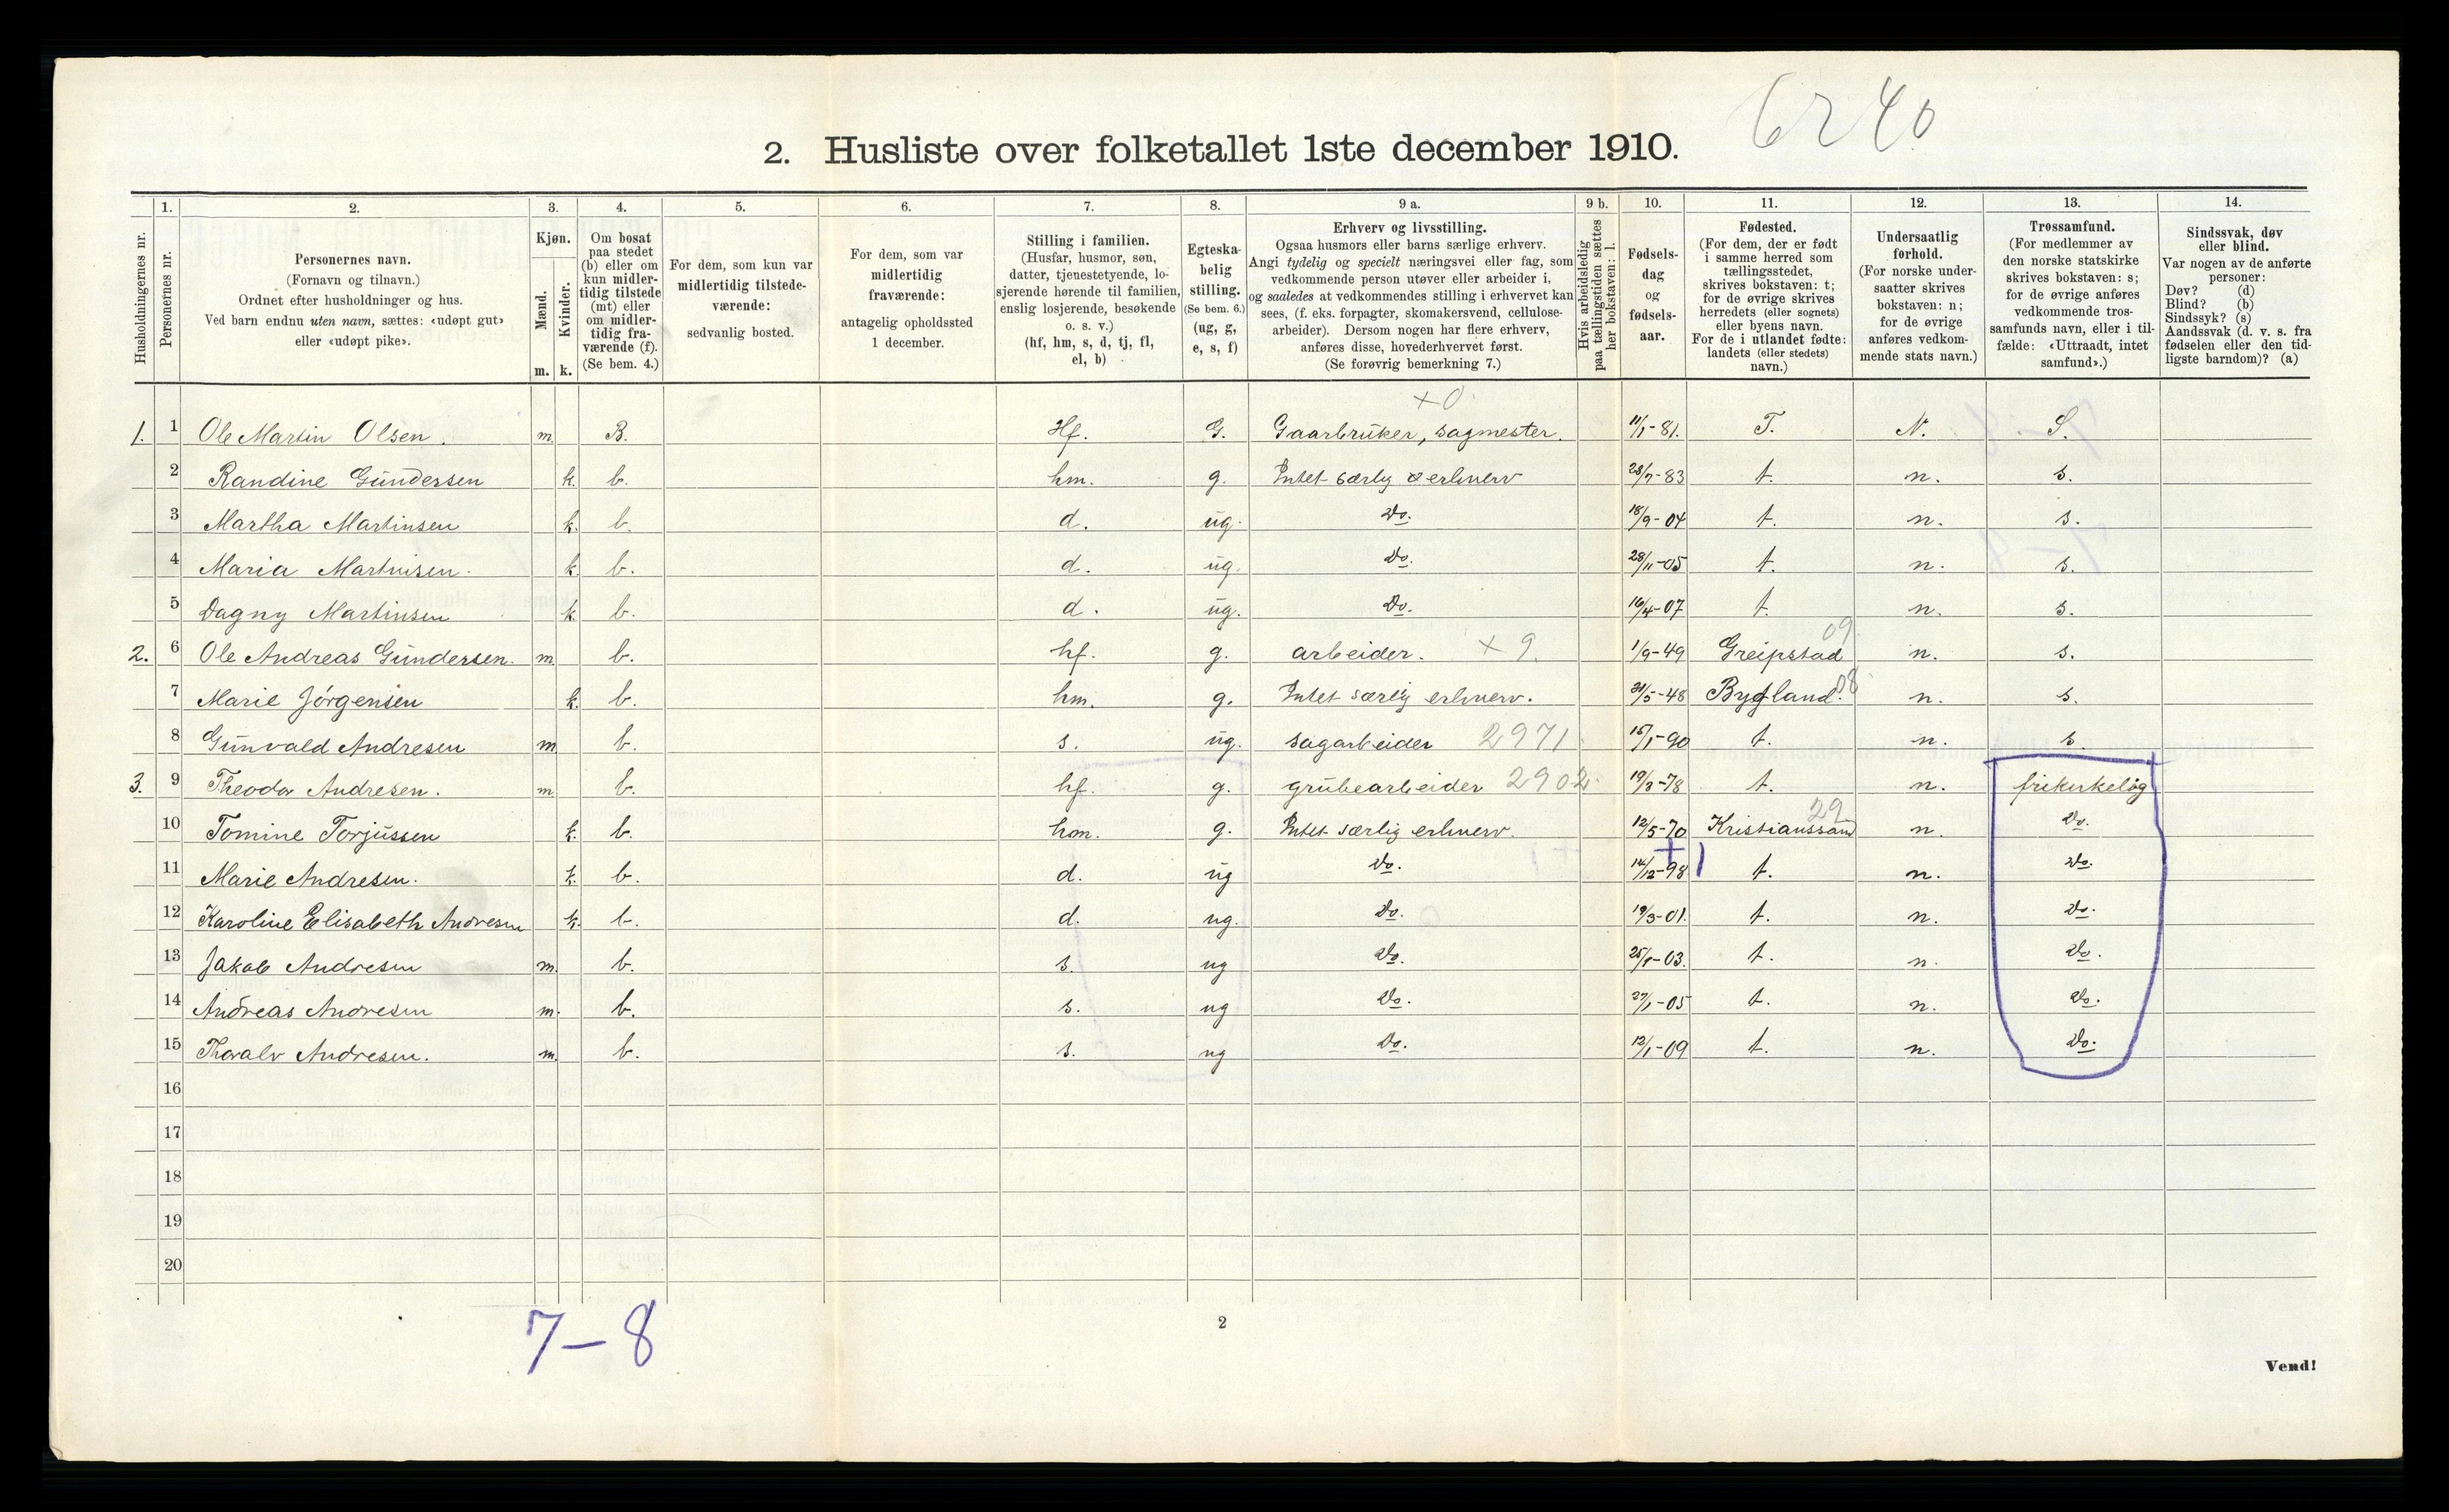 6240
2. Husliste over folketallet 1ste december 1910.
Husholdningernes nr.
1. Personernes nr.
2. Personernes navn.
(Fornavn og tilnavn.)
Ordnet efter husholdninger og hus.
Ved barn endnu uten navn, sættes: «udøpt gut»
eller «udøpt pike».
3. Kjøn.
Mænd. Kvinder.
m. k.
4. Om bosat
paa stedet
(b) eller om
kun midler-
tidig tilstede
(mt) eller
om midler-
tidig fra-
værende (f).
(Se bem. 4.)
5. For dem, som kun var
midlertidig tilstede-
værende:
sedvanlig bosted.
6. For dem, som var
midlertidig
fraværende:
antagelig opholdssted
1 december.
7. Stilling i familien.
(Husfar, husmor, søn,
datter, tjenestetyende, lo-
sjerende hørende til familien,
enslig losjerende, besøkende
o. s. v.)
(hf, hm, s, d, tj, fl,
el, b)
8. Egteska-
belig
stilling.
(Se bem. 6.)
(ug, g,
e, s, f)
9 a. Erhverv og livsstilling.
Ogsaa husmors eller barns særlige erhverv.
Angi tydelig og specielt næringsvei eller fag, som
vedkommende person utøver eller arbeider i,
og saaledes at vedkommendes stilling i erhvervet kan
sees, (f. eks. forpagter, skomakersvend, cellulose-
arbeider). Dersom nogen har flere erhverv,
anføres disse, hovederhvervet først.
(Se forøvrig bemerkning 7.)
9 b. Hvis arbeidsledig
paa tællingstiden sættes
her bokstaven: l.
10. Fødsels-
dag
og
fødsels-
aar.
11. Fødested.
(For dem, der er født
i samme herred som
tællingsstedet,
skrives bokstaven: t;
for de øvrige skrives
herredets (eller sognets)
eller byens navn.
For de i utlandet fødte:
landets (eller stedets)
navn.)
12. Undersaatlig
forhold.
(For norske under-
saatter skrives
bokstaven: n;
for de øvrige
anføres vedkom-
mende stats navn.)
13. Trossamfund.
(For medlemmer av
den norske statskirke
skrives bokstaven: s;
for de øvrige anføres
vedkommende tros-
samfunds navn, eller i til-
fælde: «Uttraadt, intet
samfund».)
14. Sindssvak, døv
eller blind.
Var nogen av de anførte
personer:
Døv? (d)
Blind? (b)
Sindssyk? (s)
Aandssvak (d. v. s. fra
fødselen eller den tid-
ligste barndom)? (a)
x0
1. 1 Ole Martin Olsen. m. B. Hf. G. Gaarbruker, sagmester. 11/1-81. T. N. S.
2 Randine Gundersen k. b. hm. g. Intet særlig erhverv 23/7-83 t. n. s.
3 Martha Martinsen k. b. d. ug. Do. 18/9-04 t. n. s.
4 Maria Martinsen. k. b. d. ug. Do. 28/11-05 t. n. s.
5 Dagny Martinsen k. b. d. ug. Do. 16/4-07 t. n. s.
2. 6 Ole Andreas Gundersen. m. b. hf. g. arbeider. x 9. 1/9-49 Greipstad 09 n. s.
7 Marie Jörgensen k. b. hm. g. Intet særlig erhverv. 31/5-48 Bygland. 08 n. s.
8 Gunvald Andresen m b. s. ug. sagarbeider 2971 15/1-90 t. n. s.
3. 9 Theodor Andresen. m. b. hf. g. grubearbeider 2902 19/3-78 t. n. frikirkelig
10 Tomine Torjussen k. b. hm. g. Intet særlig erhverv. 12/5-70 Kristianssand 29 n. Do.
11 Marie Andresen. k. b. d. ug Do. 14/12-98 t. n. Do.
12 Karoline Elisabeth Andresen k. b. d. ug. Do. 19/3-01. t. n. Do.
13 Jakob Andresen m. b. s. ug Do. 25/1-03. t. n. Do.
14 Andreas Andresen m. b. s. ug Do. 27/1-05 t. n. Do.
15 Thoralv Andresen. m. b. s. ug Do. 12/1-09 t. n. Do.
16
17
18
19
20
7-8
2
Vend!